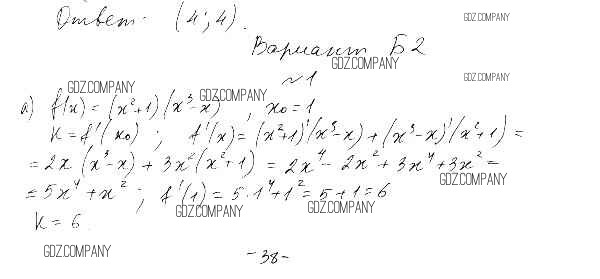 Ответ: (4; 4).
GDZ.COMPANY
Вариант Б2
GDZ.COMPANY
№1
GDZ.COMPANY
GDZ.COMPANY
GDZ.COMPANY
а) f(x) = (x²+1)(x³-x), x₀ = 1
K = f'(x₀); f'(x) = (x²+1)'(x³-x) + (x³-x)'(x²+1) =
= 2x (x³-x) + 3x²(x²+1) = 2x⁴ - 2x² + 3x⁴ + 3x² =
GDZ.COMPANY
= 5x⁴ + x²; f'(1) = 5·1⁴+1² = 5+1 = 6
GDZ.COMPANY
GDZ.COMPANY
K = 6.
GDZ.COMPANY
-38-